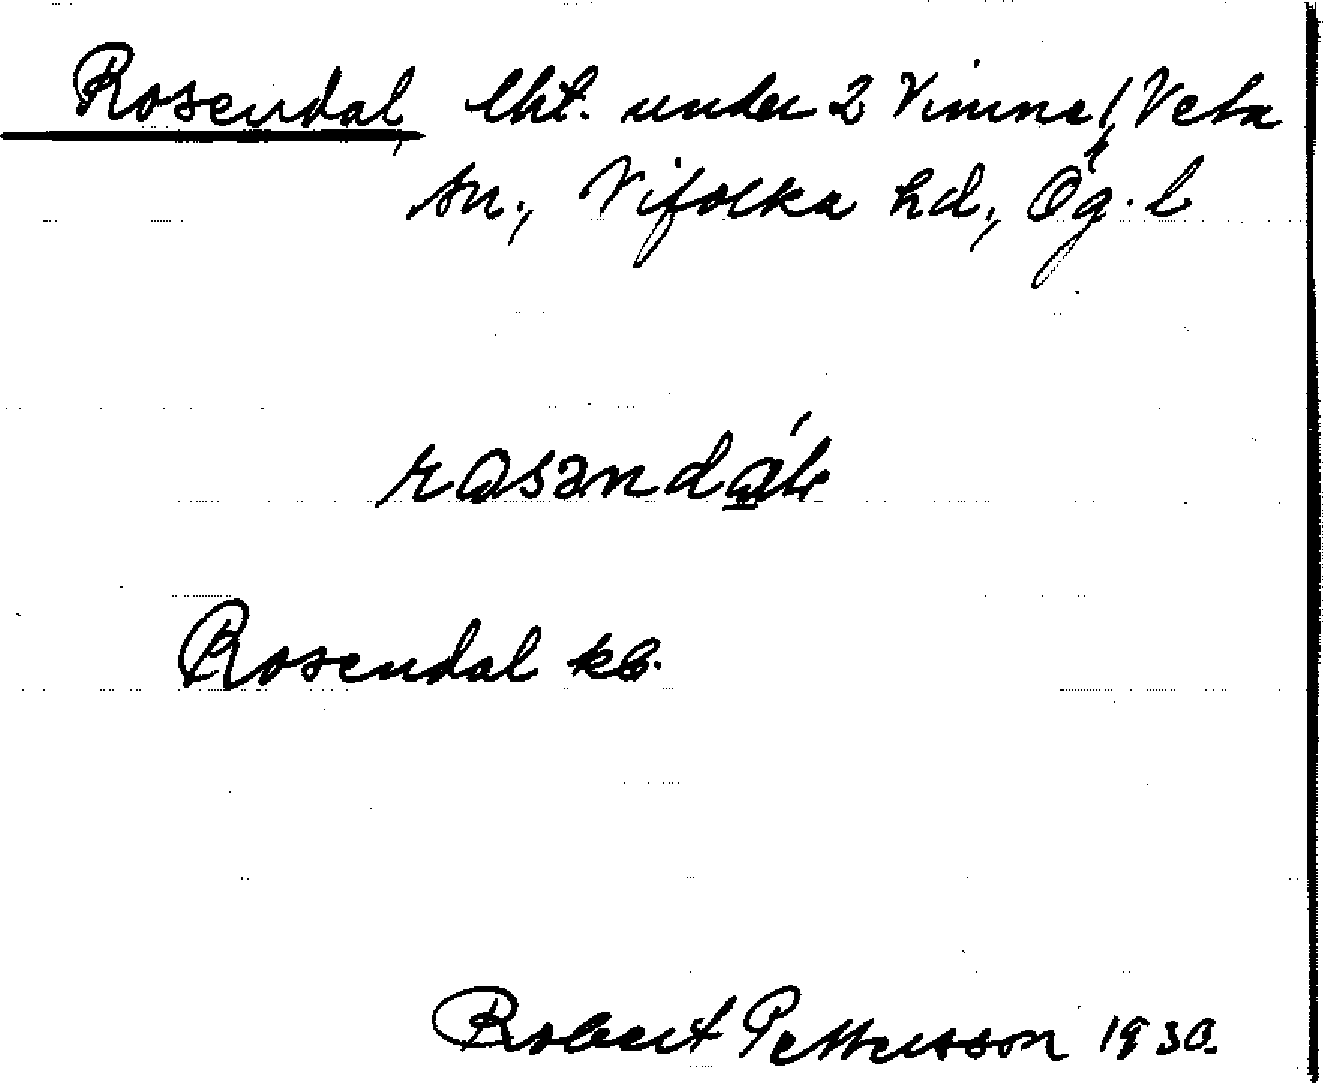 Rosendal, lht. under 2 Vimne, Veta
sn., Vifolka hd, Ög. l
rosendal kb.
Robert Pettersson 1930.